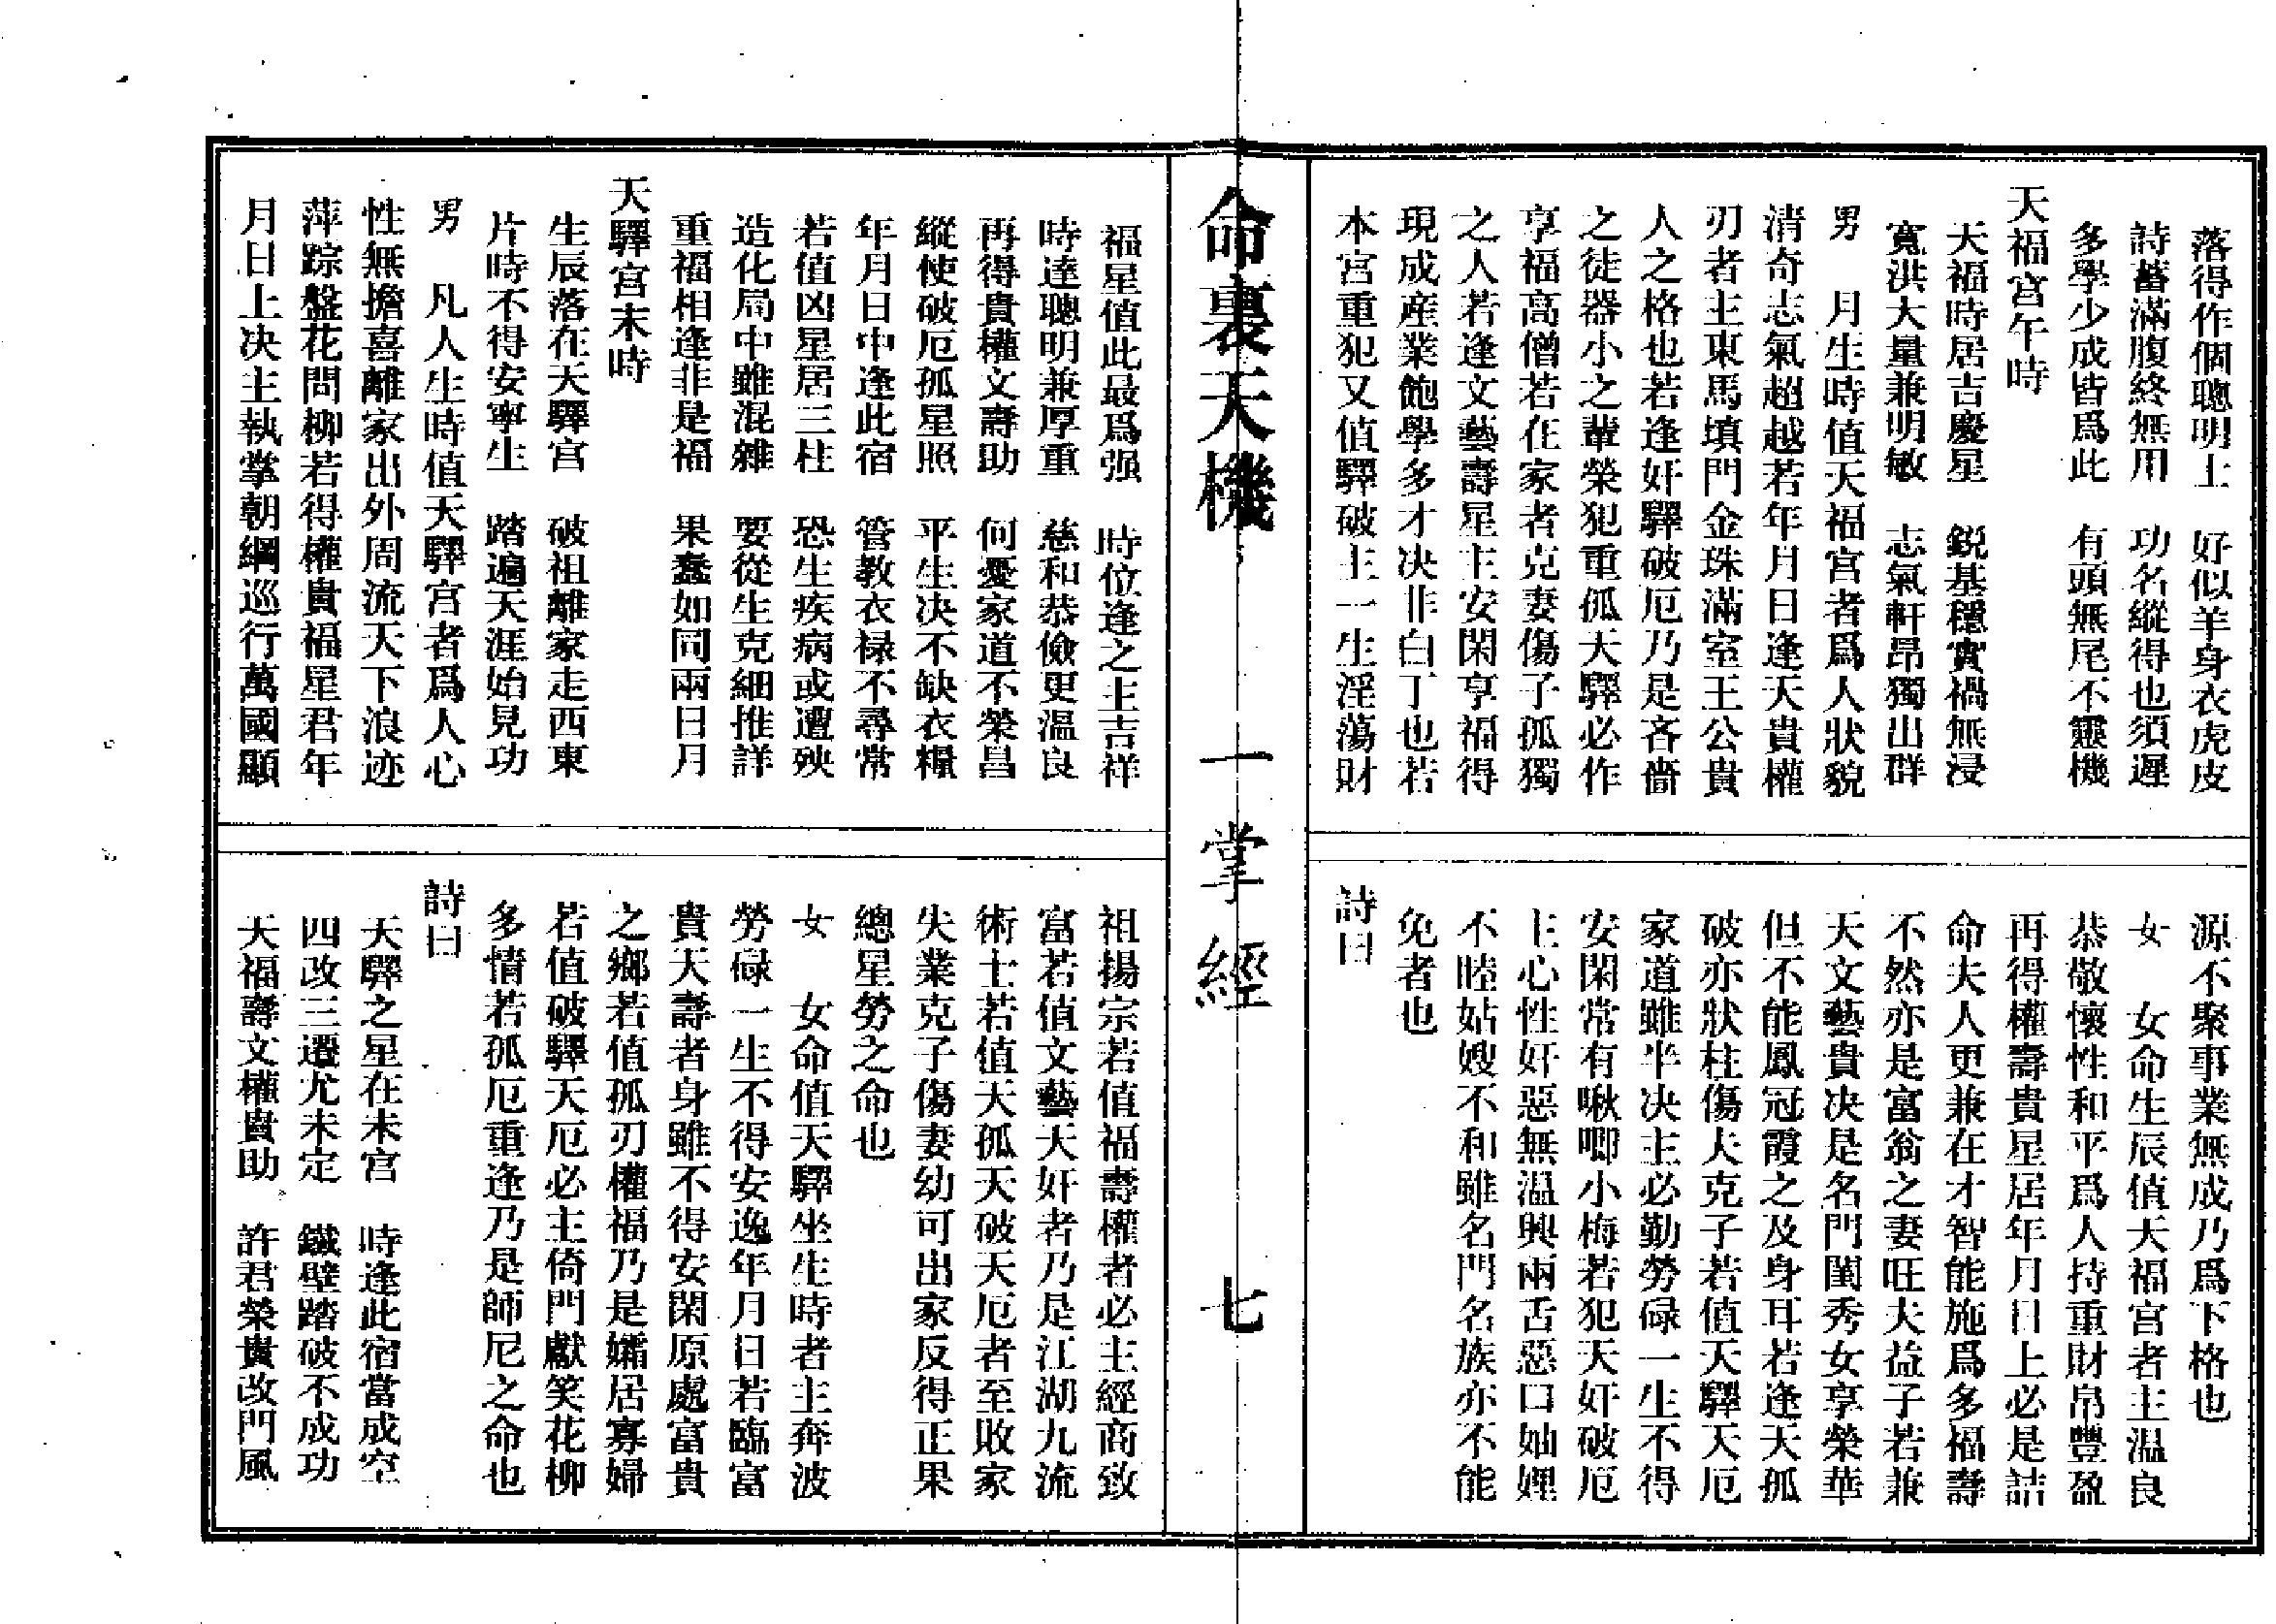 落得作個聰明士　好似羊身衣虎皮
詩蓄滿腹終無用　功名縱得也須遲
多學少成皆爲此　有頭無尾不靈機
天福宮午時
天福時居吉慶星　鋭基穩實禍無浸
寬洪大量兼明敏　志氣軒昂獨出群
男　月生時值天福宮者爲人狀貌
清奇志氣超越若年月日逢天貴權
刃者主東馬填門金珠滿室王公貴
人之格也若逢奸驛破厄乃是吝嗇
之徒器小之輩榮犯重孤天驛必作
亨福高僧若在家者克妻傷子孤獨
之人若逢文藝壽星主安閑亨福得
現成産業飽學多才决非白丁也若
本宮重犯又值驛破主一生淫蕩財
源不聚事業無成乃爲下格也
女　女命生辰值天福宮者主温良
恭敬懷性和平爲人持重財帛豐盈
再得權壽貴星居年月日上必是誥
命夫人更兼在才智能施爲多福壽
不然亦是富翁之妻旺夫益子若兼
天文藝貴决是名門閨秀女享榮華
但不能鳳冠霞之及身耳若逢天孤
破亦狀柱傷夫克子若值天驛天厄
家道雖半决主必勤勞碌一生不得
安閑常有啾唧小梅若犯天奸破厄
主心性奸惡無温興兩舌惡口妯娌
不睦姑嫂不和雖名門名族亦不能
免者也
詩曰
命裏天機　一掌經　七
福星值此最爲强　時位逢之主吉祥
時逹聰明兼厚重　慈和恭儉更温良
再得貴權文壽助　何憂家道不榮昌
縱使破厄孤星照　平生决不缺衣糧
年月日中逢此宿　管教衣禄不尋常
若值凶星居三柱　恐生疾病或遭殃
造化局中雖混雜　要從生克細推詳
重福相逢非是福　果蠢如同兩日月
天驛宮未時
生辰落在天驛宮　破祖離家走西東
片時不得安寧生　踏遍天涯始見功
男　凡人生時值天驛宮者爲人心
性無擔喜離家出外周流天下浪迹
萍踪盤花問柳若得權貴福星君年
月日上决主執掌朝綱巡行萬國顯
祖揚宗若值福壽權者必主經商致
富若值文藝天奸者乃是江湖九流
術士若值天孤天破天厄者至敗家
失業克子傷妻幼可出家反得正果
總星勞之命也
女　女命值天驛坐生時者主奔波
勞碌一生不得安逸年月日若臨富
貴天壽者身雖不得安閑原處富貴
之鄉若值孤刃權福乃是孀居寡婦
若值破驛天厄必主倚門獻笑花柳
多情若孤厄重逢乃是師尼之命也
詩曰
天驛之星在未宮　時逢此宿當成空
四改三遷尤未定　鐵壁踏破不成功
天福壽文權貴助　許君榮貴改門風